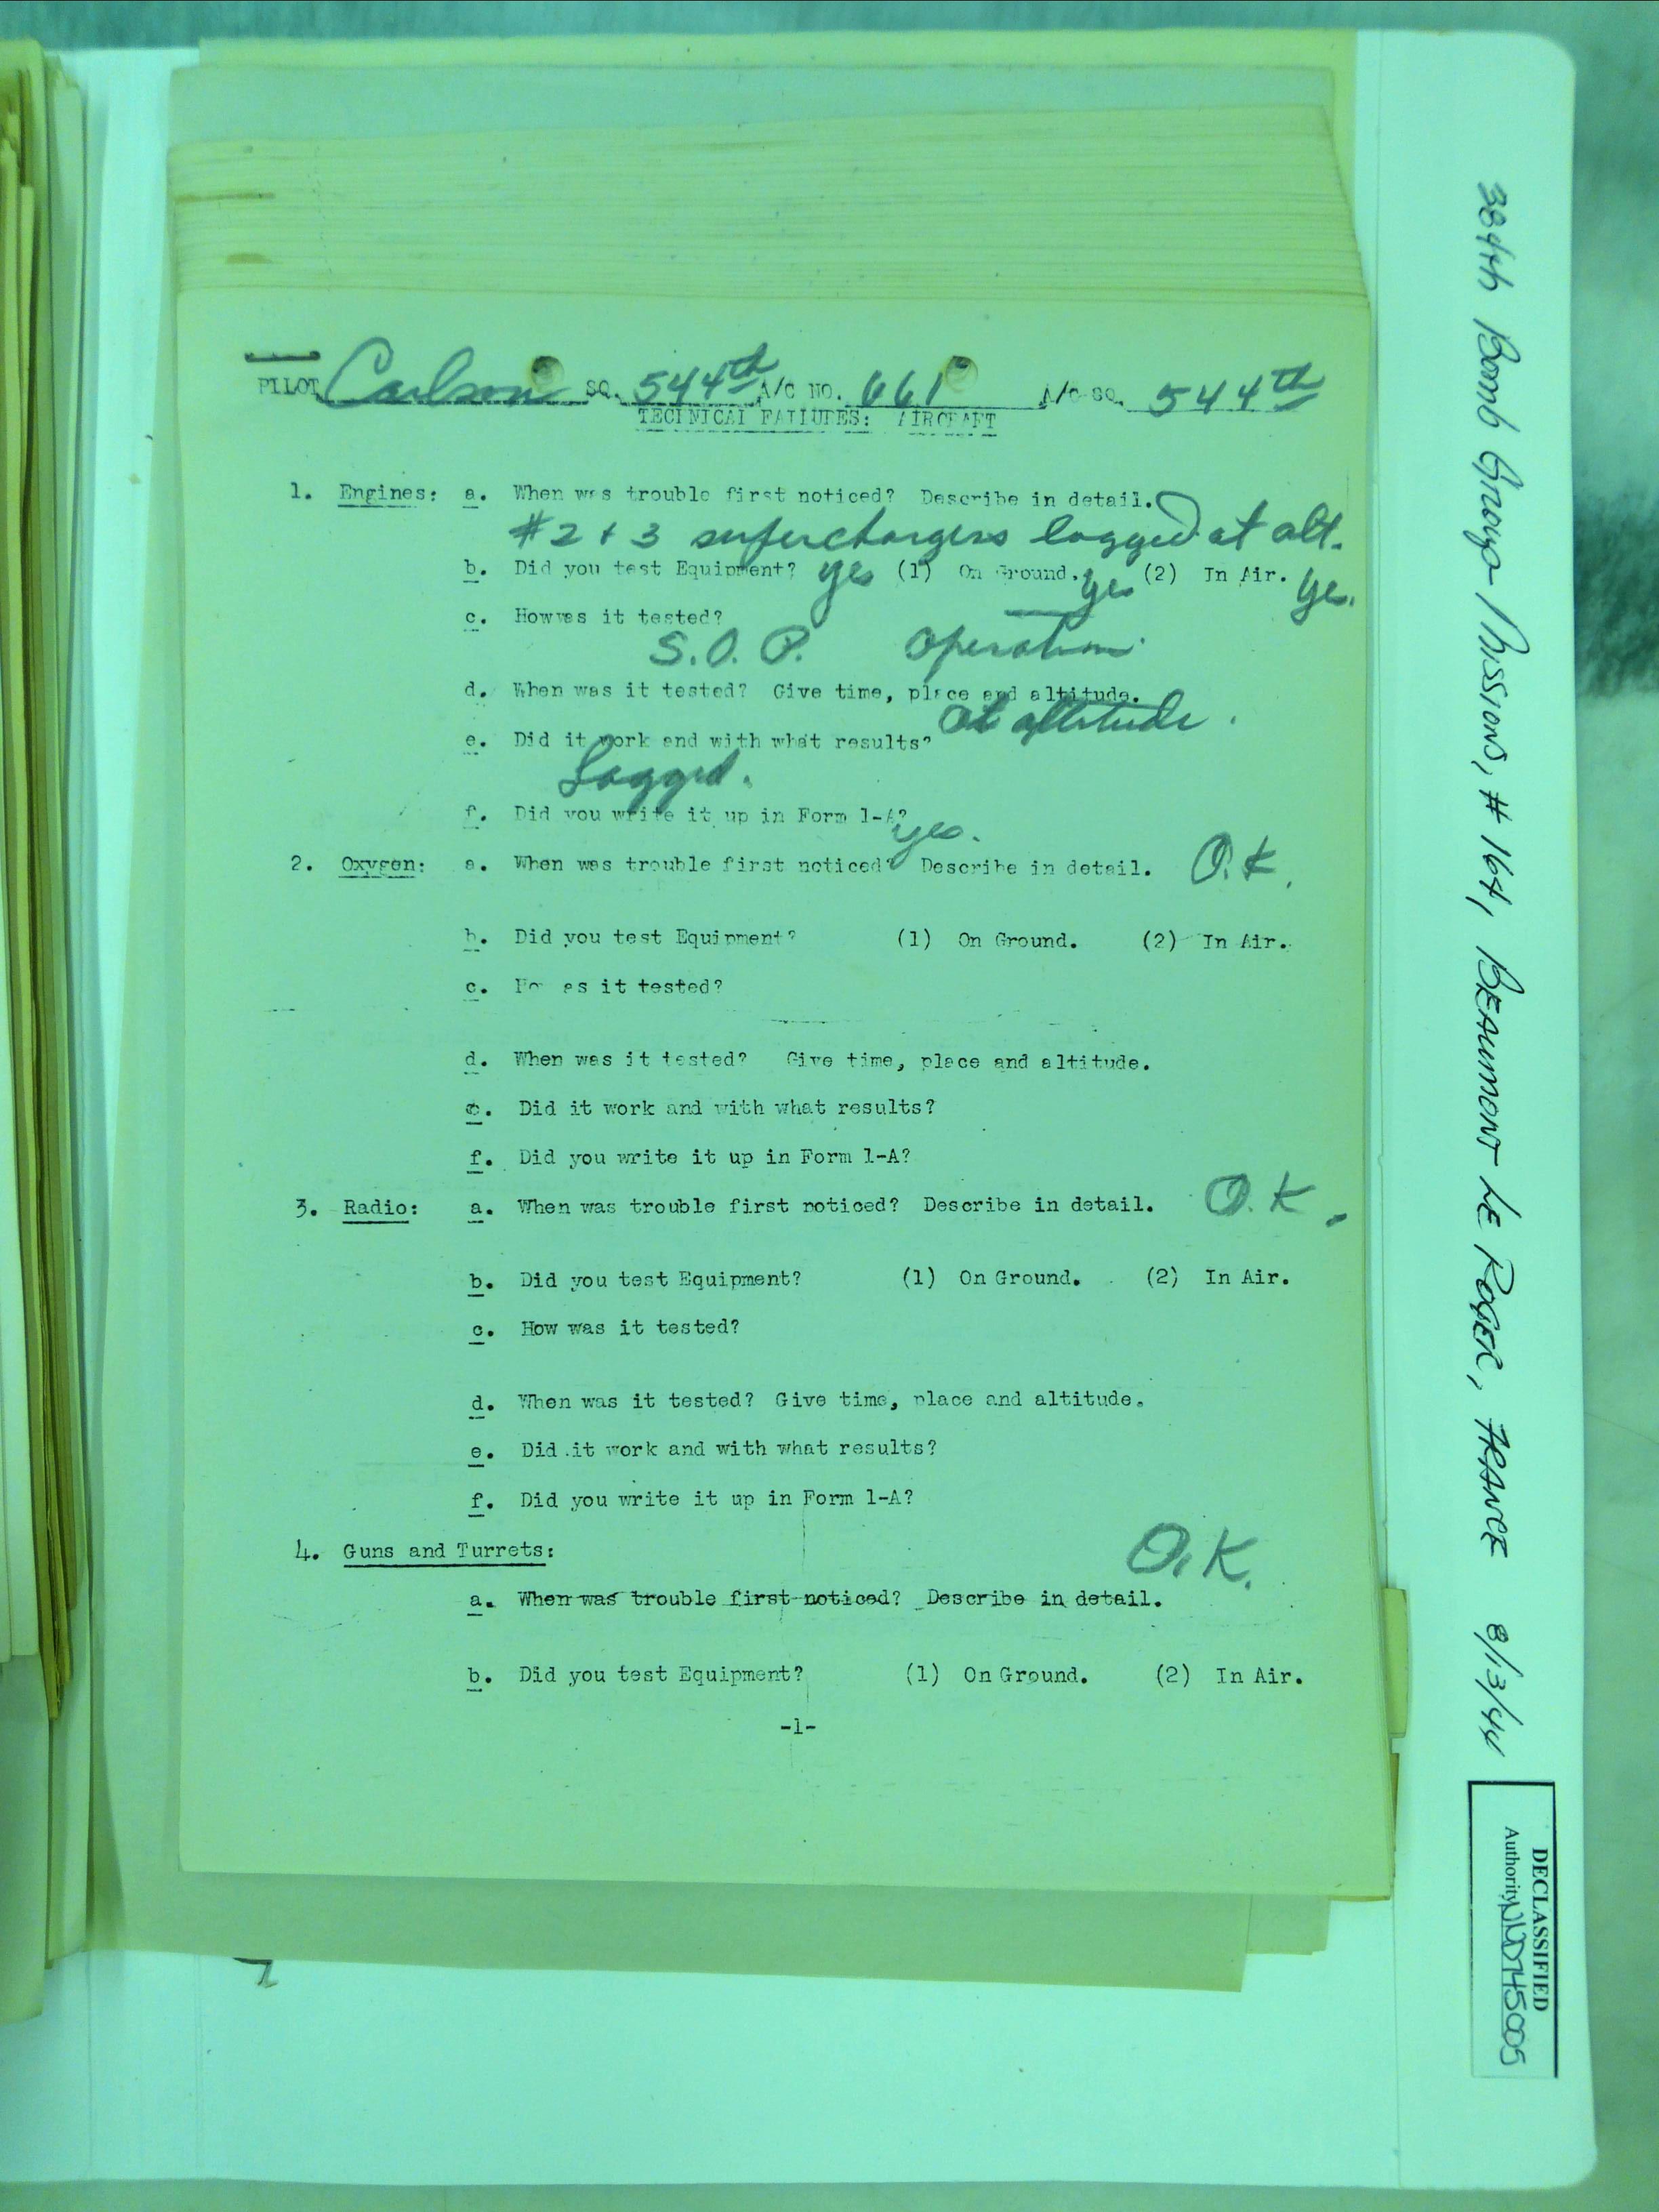 PILOT Carlson SQ. 544th A/C NO. 661 A/C SQ. 544th
TECHNICAL FAILURES: AIRCRAFT
1. Engines: a. When was trouble first noticed? Describe in detail.
#2 + 3 superchargers lagged at alt.
b. Did you test Equipment? yes (1) On Ground. yes (2) In Air. yes.
c. How was it tested?
S.O.P. Operation
d. When was it tested? Give time, place and altitude.
At altitude.
e. Did it work and with what results?
Lagged.
f. Did you write it up in Form 1-A?
yes.
2. Oxygen: a. When was trouble first noticed? Describe in detail. O.K.
b. Did you test Equipment? (1) On Ground. (2) In Air.
c. as it tested?
d. When was it tested? Give time, place and altitude.
e. Did it work and with what results?
f. Did you write it up in Form 1-A?
3. Radio: a. When was trouble first noticed? Describe in detail. O.K.
b. Did you test Equipment? (1) On Ground. (2) In Air.
c. How was it tested?
d. When was it tested? Give time, place and altitude.
e. Did it work and with what results?
f. Did you write it up in Form 1-A?
4. Guns and Turrets: O.K.
a. When was trouble first noticed? Describe in detail.
b. Did you test Equipment? (1) On Ground. (2) In Air.
-1-
384th Bomb Group Missions, #164, BEAUMONT LE ROGER, FRANCE 8/13/44
DECLASSIFIED
Authority NND745005